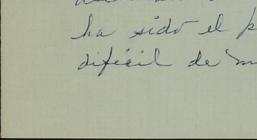 ha sido el
difícil de